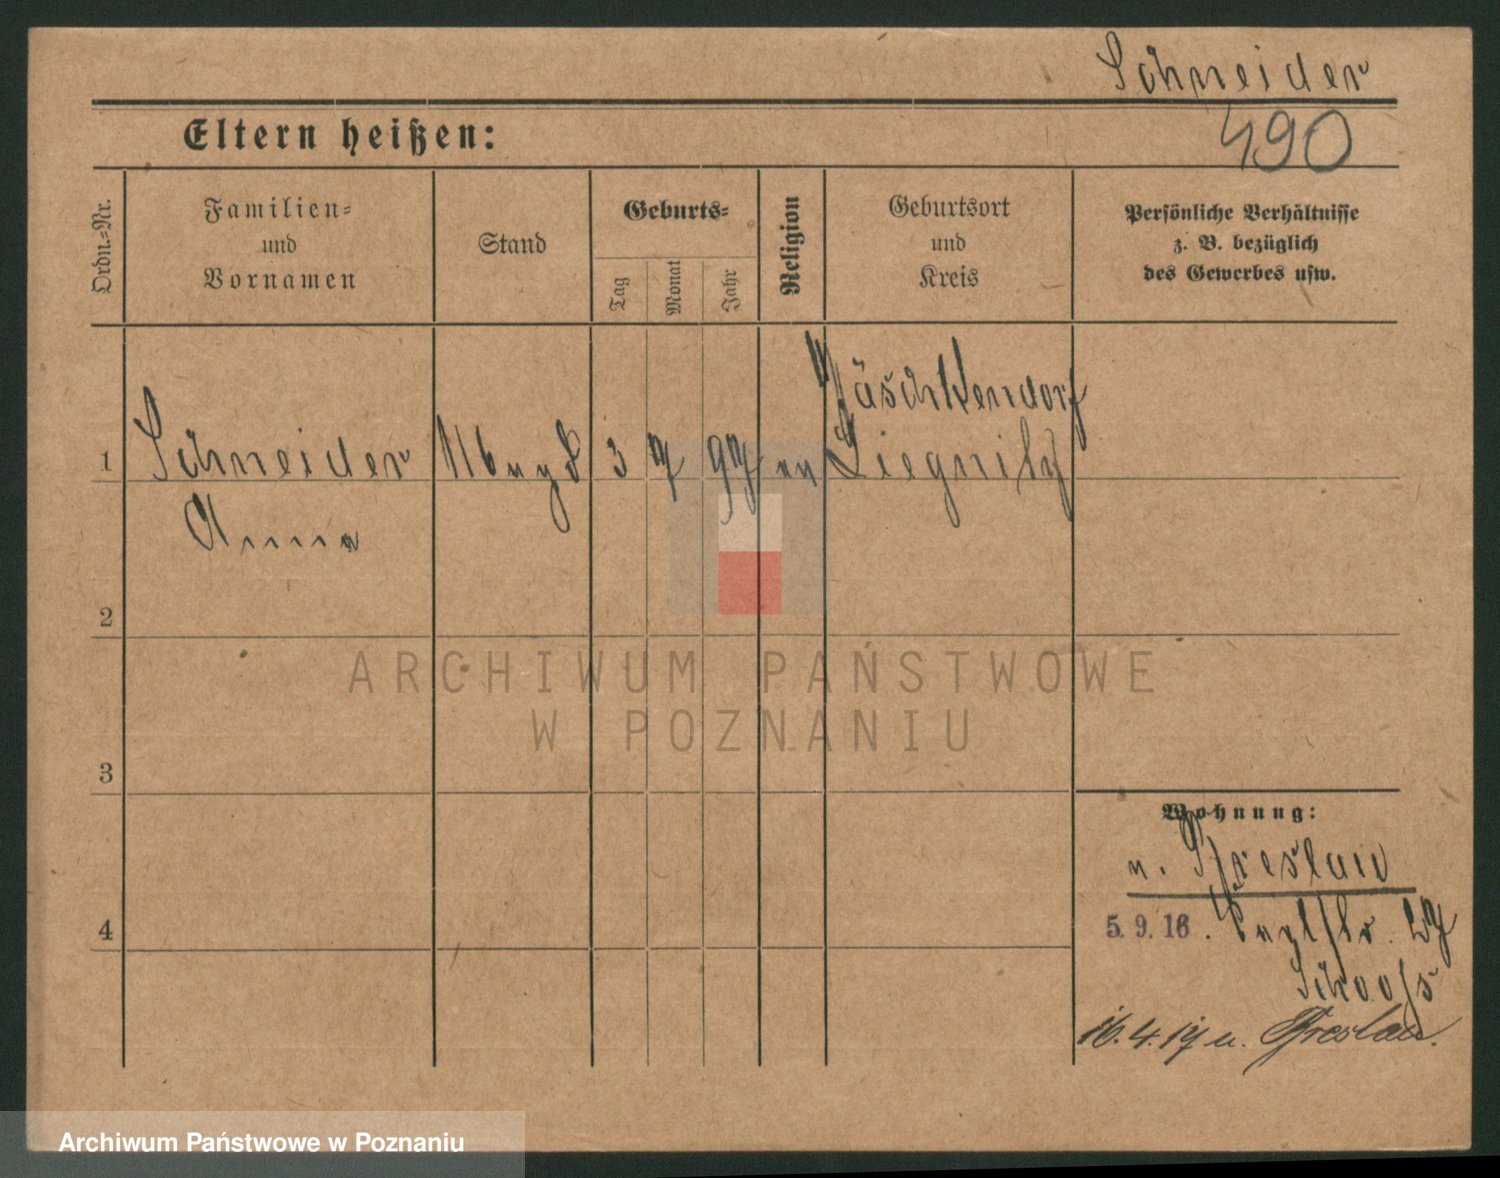 Schneider
Eltern heißen:
490
Ordn.-Nr.
Familien-
und
Vornamen
Stand
Geburts-
Tag
Monat
Jahr
Religion
Geburtsort
und
Kreis
Persönliche Verhältnisse
z. B. bezüglich
des Gewerbes usw.
1 Schneider 3 7 97 ev Liegnitz
Anna
2
3
4
Wohnung:
n. Breslau
5. 9. 16.
16.4.17 n. Breslau.
ARCHIWUM PAŃSTWOWE
W POZNANIU
Archiwum Państwowe w Poznaniu